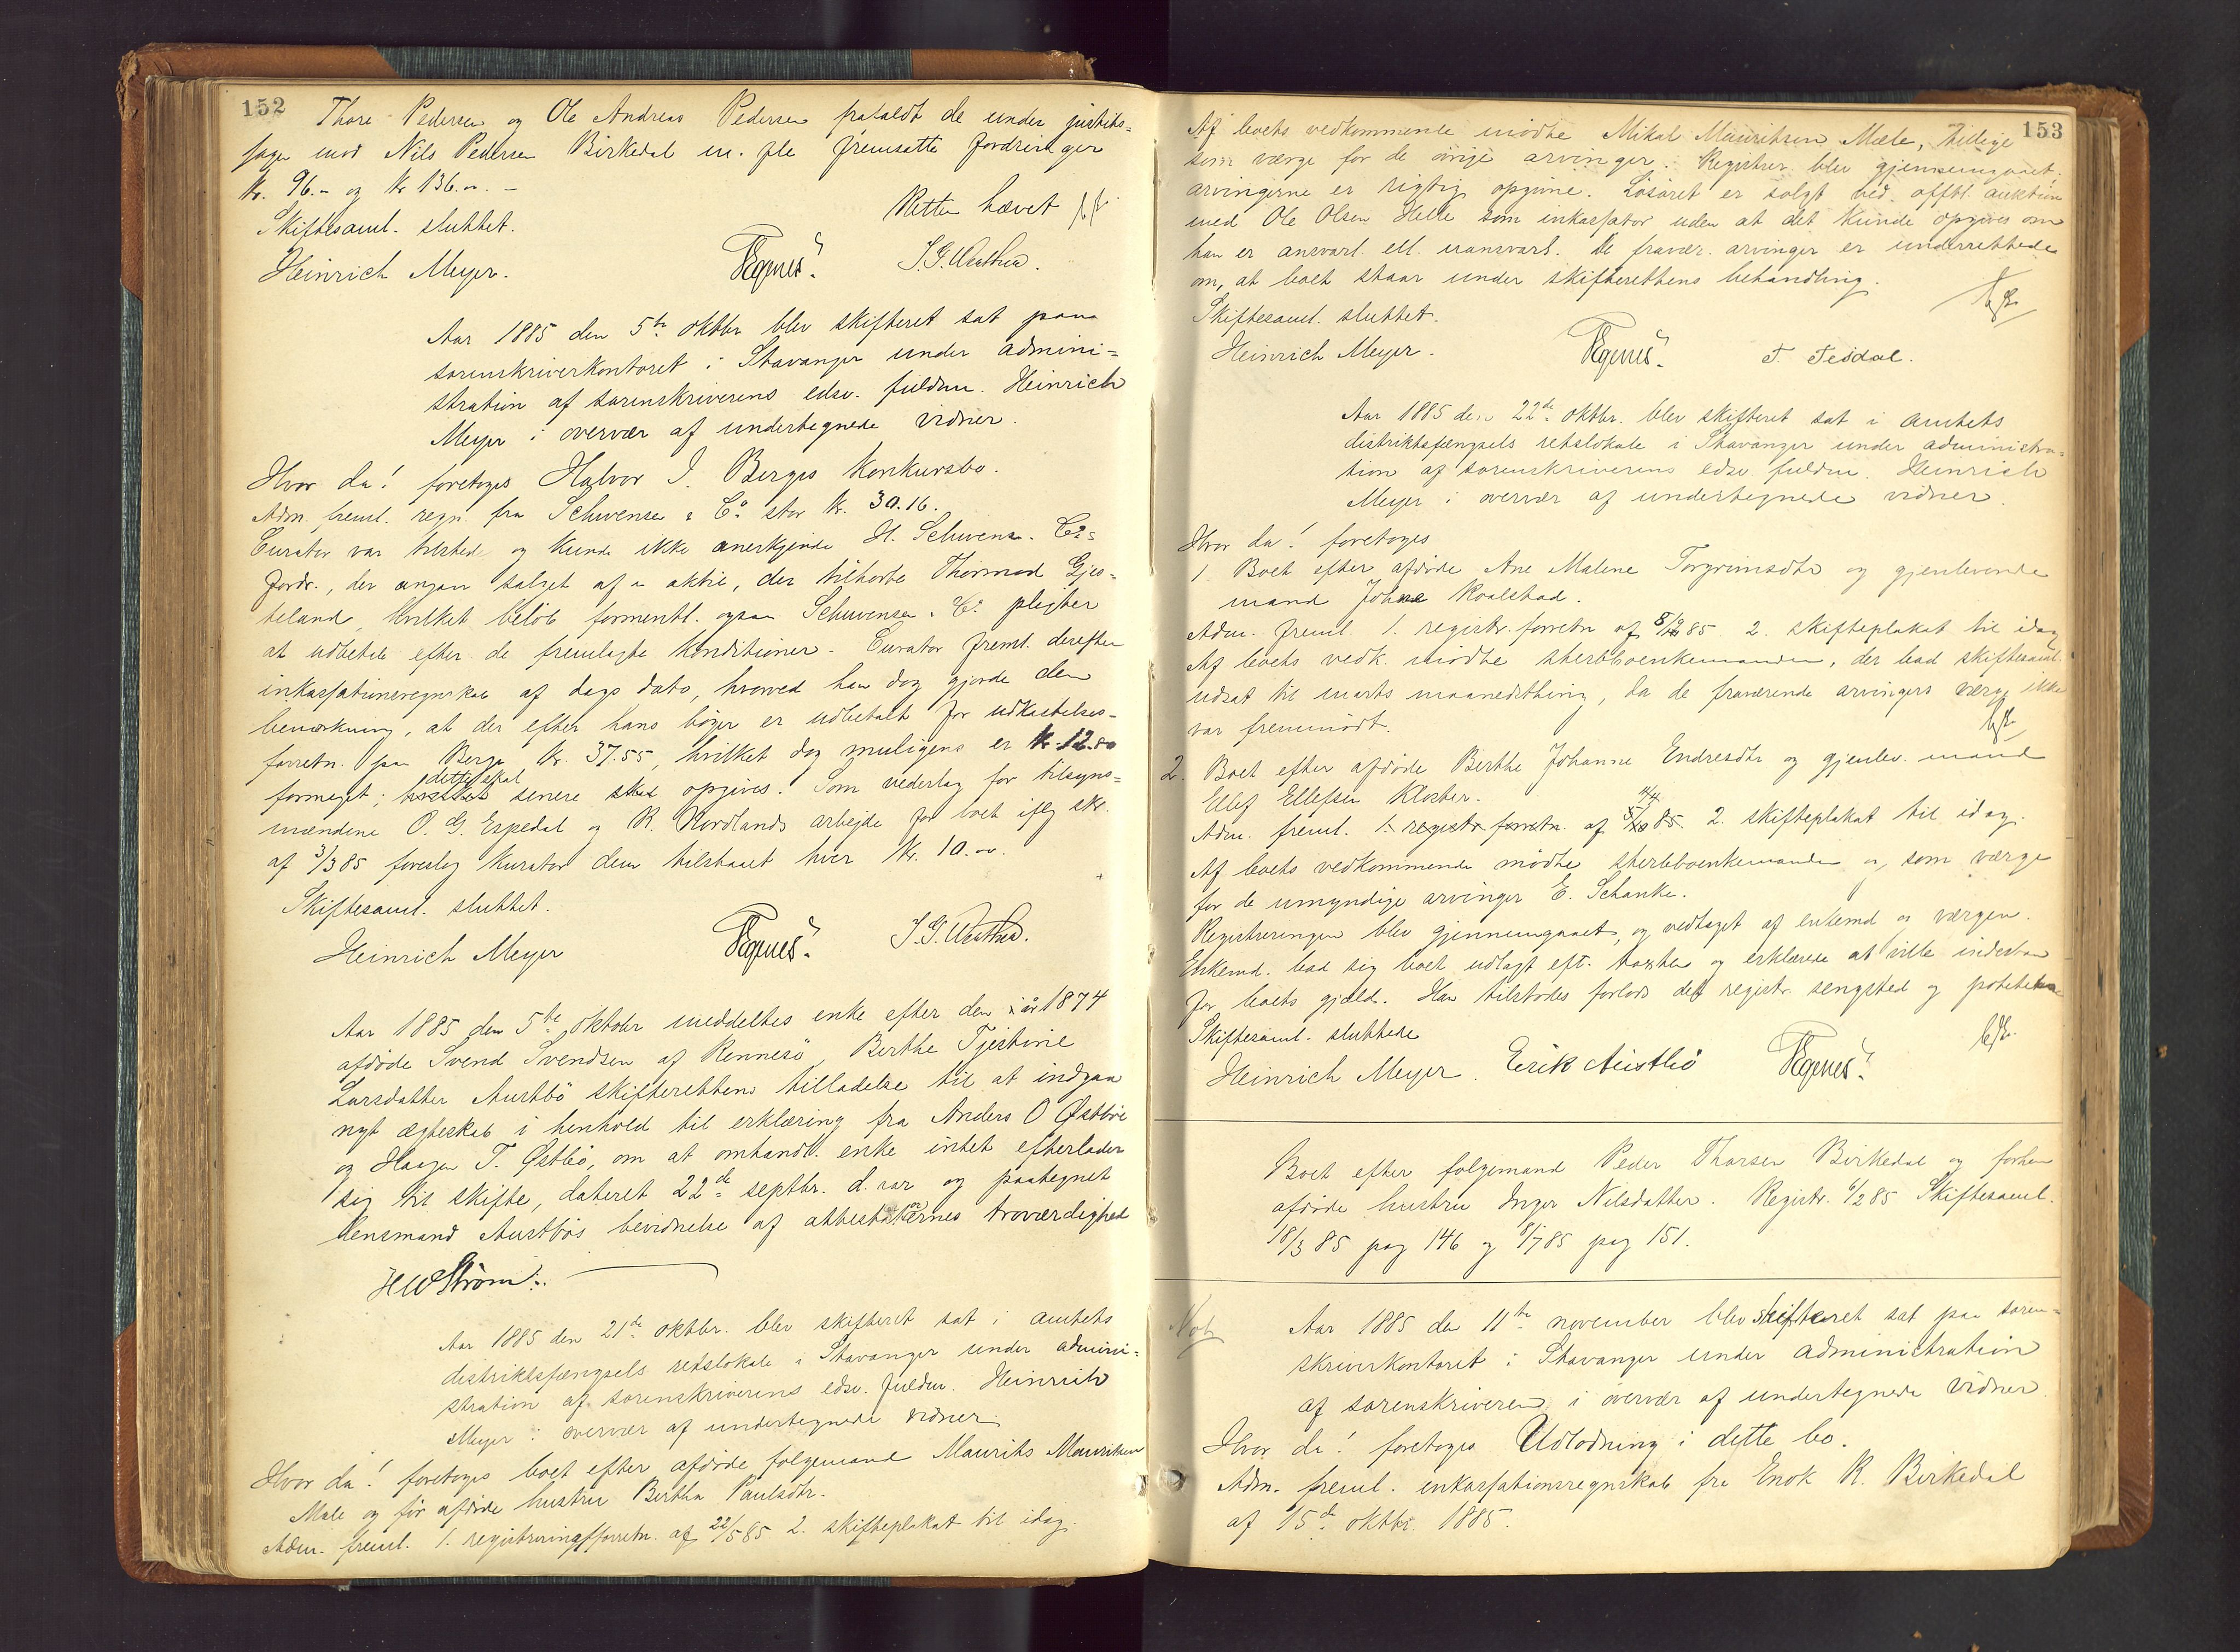 152
Thore Pedersen og Ole Andreas Pedersen frafaldt de under justits-
sagen mod Nils Pedersen Birkedal m. fle fremsatte fordringer
Kr. 96.- og Kr 136.-. -
Retten hævet
Skiftesaml. sluttet.
Heinrich Meyer. Egenes.
Aar 1885 den 5te oktbr blev skifteret sat paa
sorenskriverkontoret i Stavanger under admini-
stration af sorenskriverens edsv. fuldm. Heinrich
Meyer i overvær af undertegnede vidner.
Hvor da! foretoges Halvor I. Berges Konkursbo.
Adm. freml. regn. fra Schwensen & Co stor Kr. 30.16.
Curator var tilstede og kunde ikke anerkjende H. Schwens. Co's
fordr., der angaar salget af aktie, der tilhørte Thormod Gjes-
teland, hvilket beløb formentl. ogsaa Schwensen & Co pligter
at udbetale efter de fremlagte konditioner. Curator freml. derefter
inkassationsregnskab af dags dato, hvorved han dog gjorde den
bemærkning, at der efter hans bøger er udbetalt for udkastelses-
forretn. paa Berge Kr. 37.55, hvilket dog muligens er Kr. 12.80
formeget; dette skal senere opgives. Som vederlag for tilsyns-
mændene O. G. Espedal og R. Nordlands arbejde for boet ifлg skr.
af 3/3 85 foreslog kurator dem tilstaaet hver Kr. 10.00.
Skiftesaml. sluttet.
Heinrich Meyer Egenes.
Aar 1885 den 5te oktober meddeltes enke efter den i år 1874
afdøde Svend Svendsen af Rennesø, Berthe Tjestine
Larsdatter Austbø skifterettens tilladelse til at indgaa
nyt ægteskab i henhold til erklæring fra Anders O Østbø
og Haagen T. Østbø, om at omhandl. enke intet efterlader
sig til skifte, dateret 22de septbr. d. aar og paategnet
lensmand Austbøs bevidnelse af attestatørernes troværdighed
HWStrøm.
Aar 1885 den 21de oktbr. blev skifteret sat i amtets
distriktsfængsels retslokale i Stavanger under admini-
stration af sorenskriverens edsv. fuldm. Heinrich
Meyer i overvær af undertegnede vidner.
Hvor da! foretoges boet efter afdøde følgemand Maurits Mauritsen
Mæle og før afdøde hustru Bertha Paulsdtr.
Adm. freml. 1. registreringsforretn. af 22/5 85 2. skifteplakat til idag.
153
Af boets vedkommende mødte Mikal Mauritsen Mæle, tillige
som værge for de øvrige arvinger. Registrer. blev gjennemgaaet.
arvingerne er rigtig opgivne. Løsøret er solgt ved offtl. auktion
med Ole Olsen Helle som inkassator uden at det kunde opgives om
han er ansvarl. ell. uansvarl. De fravær. arvinger er underrettede
om, at boet staar under skifterettens behandling.
Skiftesaml. sluttet.
Heinrich Meyer. Egenes. T. Tesdal.
Aar 1885 den 22de oktbr. blev skifteret sat i amtets
distriktsfængsels retslokale i Stavanger under administra-
tion af sorenskriverens edsv. fuldm. Heinrich
Meyer i overvær af undertegnede vidner.
Hvor da! foretoges
1 Boet efter afdøde Ane Malene Torgrimsdtr og gjenlevende
mand Johne Koalstad.
Adm. freml. 1. registr. forretn af 85. 2. skifteplakat til idag
Af boets vedk. mødte sterbboenkemanden, der bad skiftesaml.
udsat til marts maanedsthing, da de fraværende arvingers værge ikke
var fremmødt.
2. Boet efter afdøde Berthe Johanne Endresdtr og gjenlev. mand
Ellef Ellefsen Kloster.
Adm. freml. 1. registr forretn. af 85. 2. skifteplakat til idag.
Af boets vedkommende mødte sterbboenkemanden og, som værge
for de umyndige arvinger E. Schanke.
Registreringen blev gjennemgaaet, og vedtaget af enkemd og værgen.
Enkemd. bad sig boet udlagt eft. taxten og erklærede at ville indestaa
for boets gjæld. Han tilstodes forlods det registr. sengsted og
Skiftesaml. sluttede
Heinrich Meyer. Erik Austbö Egenes.
Boet efter følgemand Peder Thorsen Birkedal og forhen
afdøde hustru Inger Nilsdatter. Registr. 6/2 85 Skiftesaml.
18/3 85 pag 146 og 8/7 85 pag 151.
Aar 1885 den 11te november blev skifteret sat paa soren-
skriverkontoret i Stavanger under administration
af sorenskriveren i overvær af undertegnede vidner
Hvor da! foretoges Udlodning i dette bo.
Adm. freml. inkassationsregnskab fra Enok R. Birkedal
af 15de oktbr. 1885.